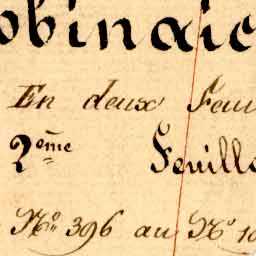 obinaie
En deux Feu
2ème Feuille
N° 396 au N° 10